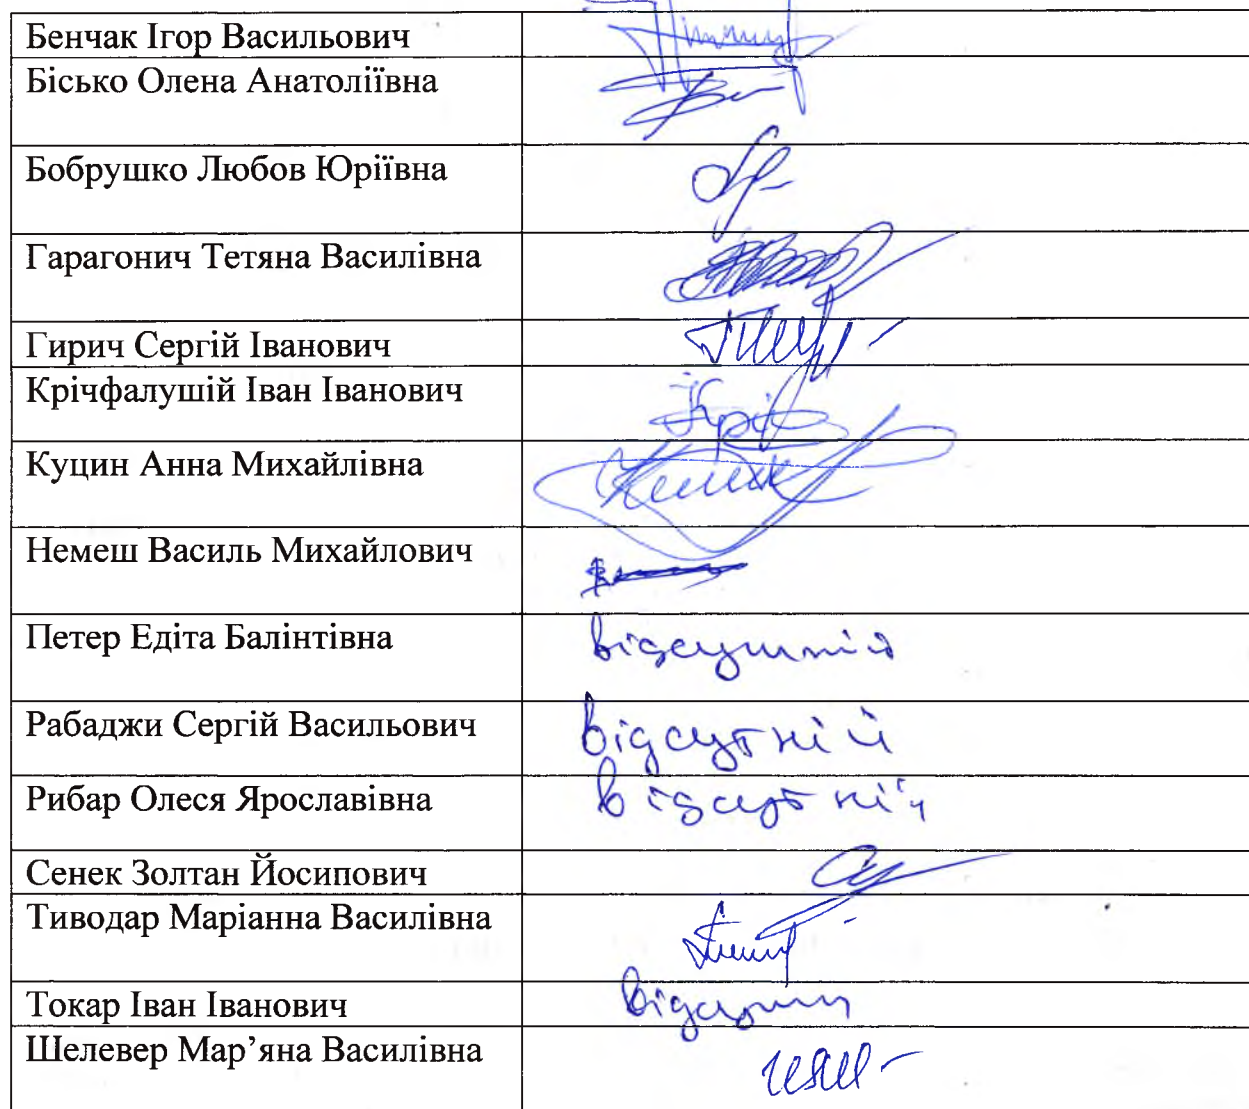 Бенчак Ігор Васильович
Бісько Олена Анатоліївна
Бобрушко Любов Юріївна
Гарагонич Тетяна Василівна
Гирич Сергій Іванович
Крічфалушій Іван Іванович
Куцин Анна Михайлівна
Немеш Василь Михайлович
Петер Едіта Балінтівна відсутній
Рабаджи Сергій Васильович відсутній
Рибар Олеся Ярославівна відсутній
Сенек Золтан Йосипович
Тиводар Маріанна Василівна
Токар Іван Іванович
Шелевер Мар’яна Василівна